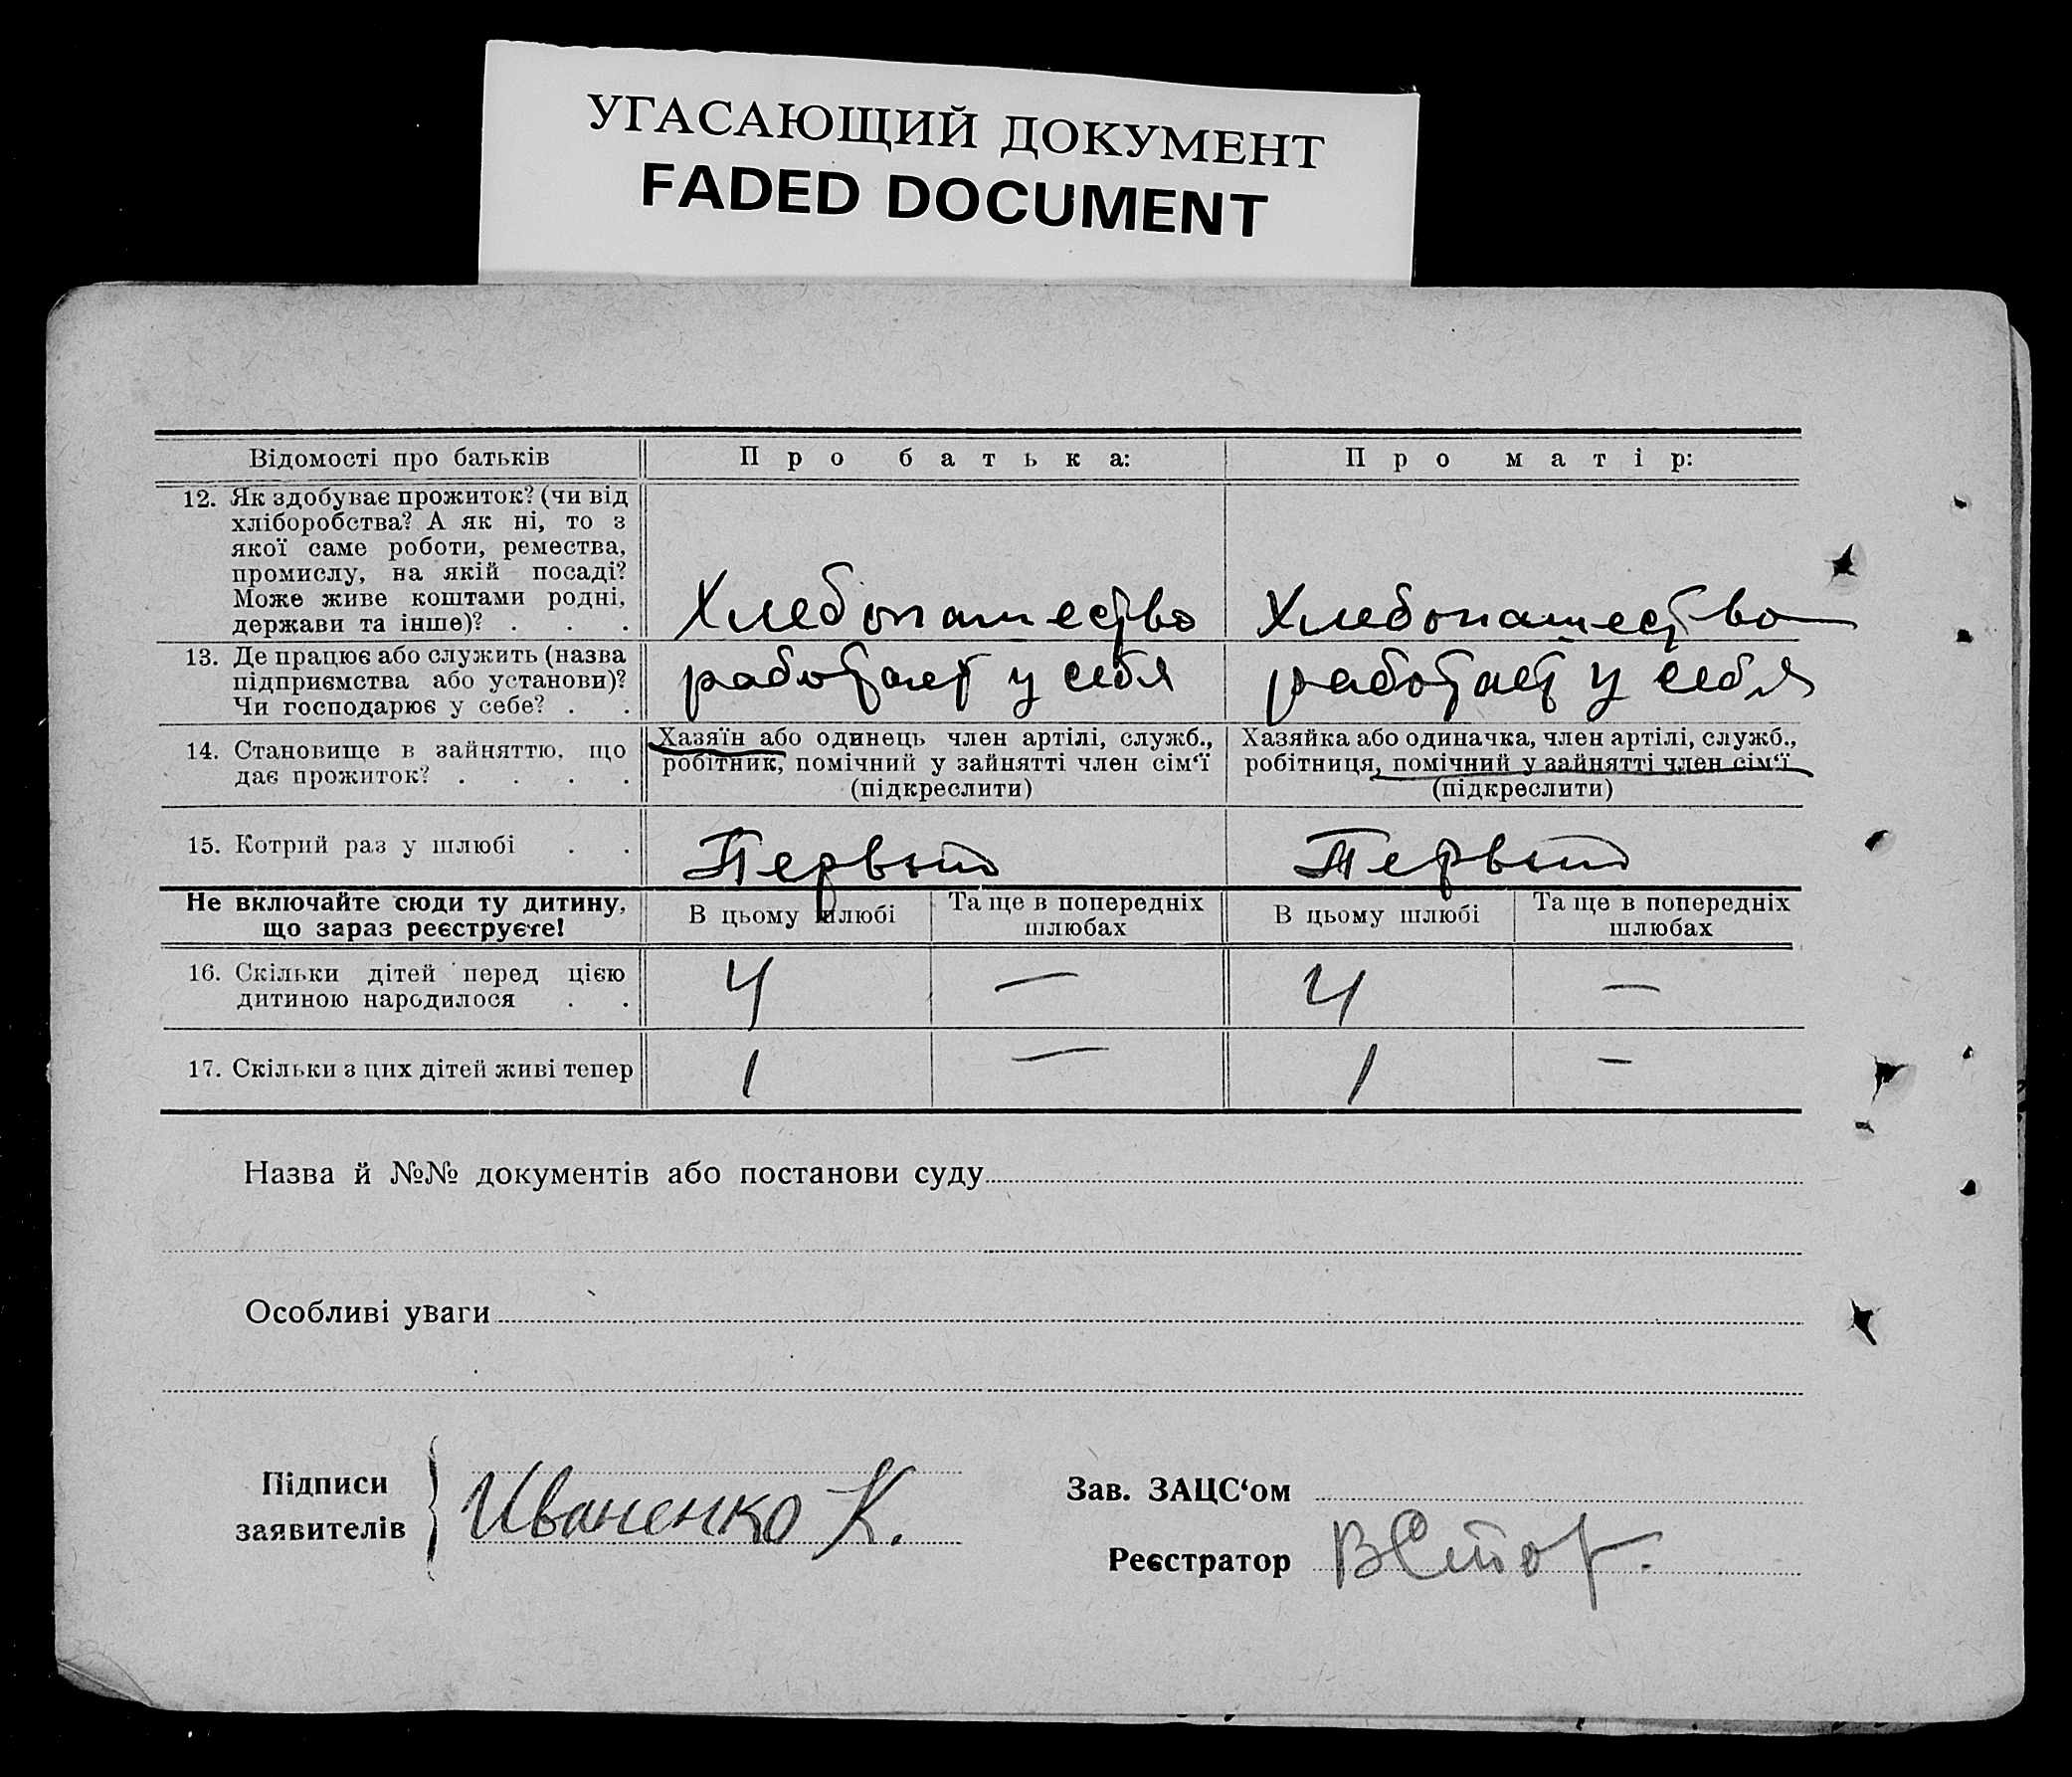 УГАСАЮЩИЙ ДОКУМЕНТ
FADED DOCUMENT
Відомості про батьків
Про батька:
Про матір:
12. Як здобуває прожиток? (чи від
хліборобства? А як ні, то з
якої саме роботи, ремества,
промислу, на якій посаді?
Може живе коштами родні,
держави та інше)? . . .
Хлебопашество
Хлебопашество
13. Де працює або служить (назва
підприємства або установи)?
Чи господарює у себе? . .
работает у себя
работает у себя
14. Становище в зайняттю, що
дає прожиток? . . . .
Хазяїн або одинець член артілі, служб.,
робітник, помічний у зайнятті член сім‘ї
(підкреслити)
Хазяйка або одиначка, член артілі, служб.,
робітниця, помічний у зайнятті член сім‘ї
(підкреслити)
15. Котрий раз у шлюбі . .
Первый
Первый
Не включайте сюди ту дитину,
що зараз реєструєте!
В цьому шлюбі
Та ще в попередніх
шлюбах
В цьому шлюбі
Та ще в попередніх
шлюбах
16. Скільки дітей перед цією
дитиною народилося . .
4
—
4
—
17. Скільки з цих дітей живі тепер
1
—
1
—
Назва й №№ документів або постанови суду
Особливі уваги
Підписи
заявителів
Иваненко К.
Зав. ЗАЦС‘ом
Реєстратор